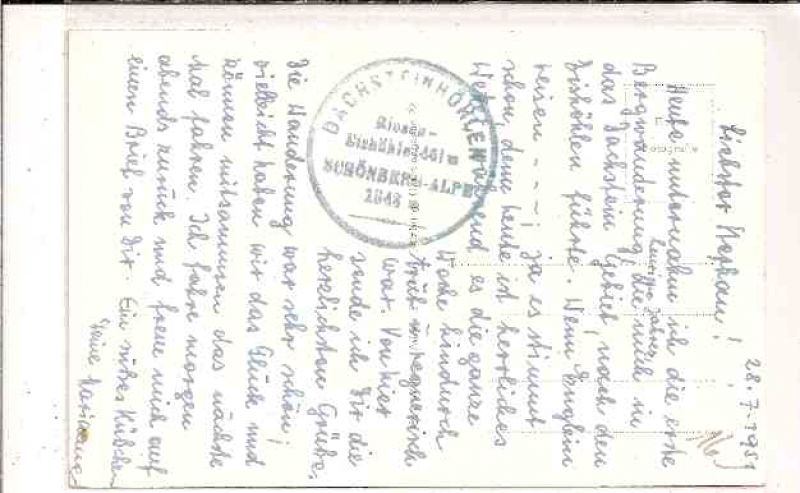 28.7.1951
Liebster Stephan!
Heute unternahm ich die erste
heuriges Jahres,
Bergwanderung die mich in
das Dachstein Gebiet, nach den
Eishöhlen führte. Wenn Englein
reisen - - - ! ja es stimmt
schon, denn heute ist herrliches
Wetter, während es die ganze
Woche hindurch
trüb u. regnerisch
war. Von hier
sende ich Dir die
herzlichsten Grüße.
Die Wanderung war sehr schön!
vielleicht haben wir das Glück und
können mitsammen das nächste
Mal fahren. Ich fahre morgen
abends zurück und freue mich auf
einen Brief von Dir. Ein süßes Küßchen
Deine Marianne
DACHSTEINHÖHLEN
Riesen-
Eishöhle
SCHÖNBERG-ALPE